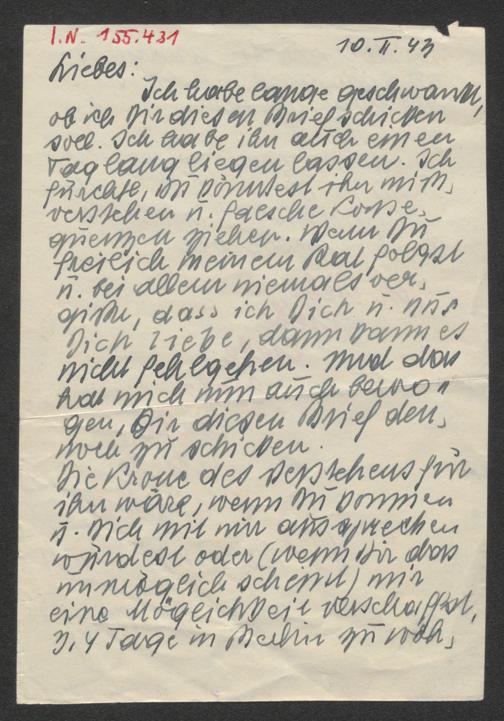 I.N. 155.431
10.II.43
Liebes:
Ich habe lange geschwankt,
ob ich Dir diesen Brief schicken
soll. Ich habe ihn auch einen
Tag lang liegen lassen. Ich
fürchte, Du könntest ihn miß-
verstehen u. falsche Konse-
quenzen ziehen. Wenn Du
freilich meinem Rat folgst
u. bei allem niemals ver-
gißt, dass ich Dich u. nur
Dich liebe, dann kann es
nicht fehlgehen. Und das
hat mich nun auch bewo-
gen, Dir diesen Brief den-
noch zu schicken.
Die Krone des Verstehens für
ihn wäre, wenn Du kommen
u. Dich mit mir aussprechen
würdest oder (wenn Dir das
unmöglich scheint) mir
eine Möglichkeit verschaffst,
3, 4 Tage in Berlin zu woh-